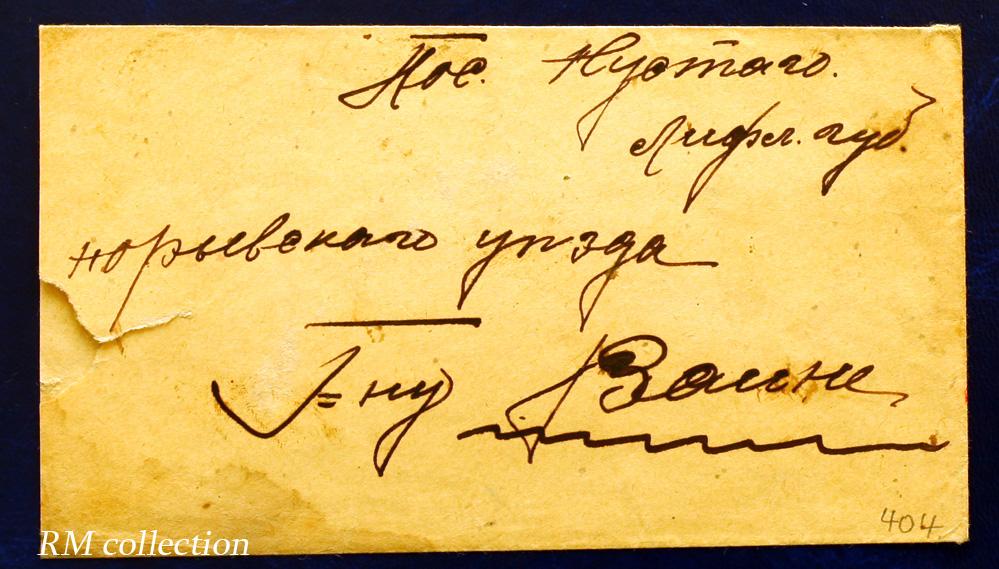 Пос. Нустаго.
Лифл. губ.
Юрьевскаго уѣзда
Г=ну Заине
404
RM collection